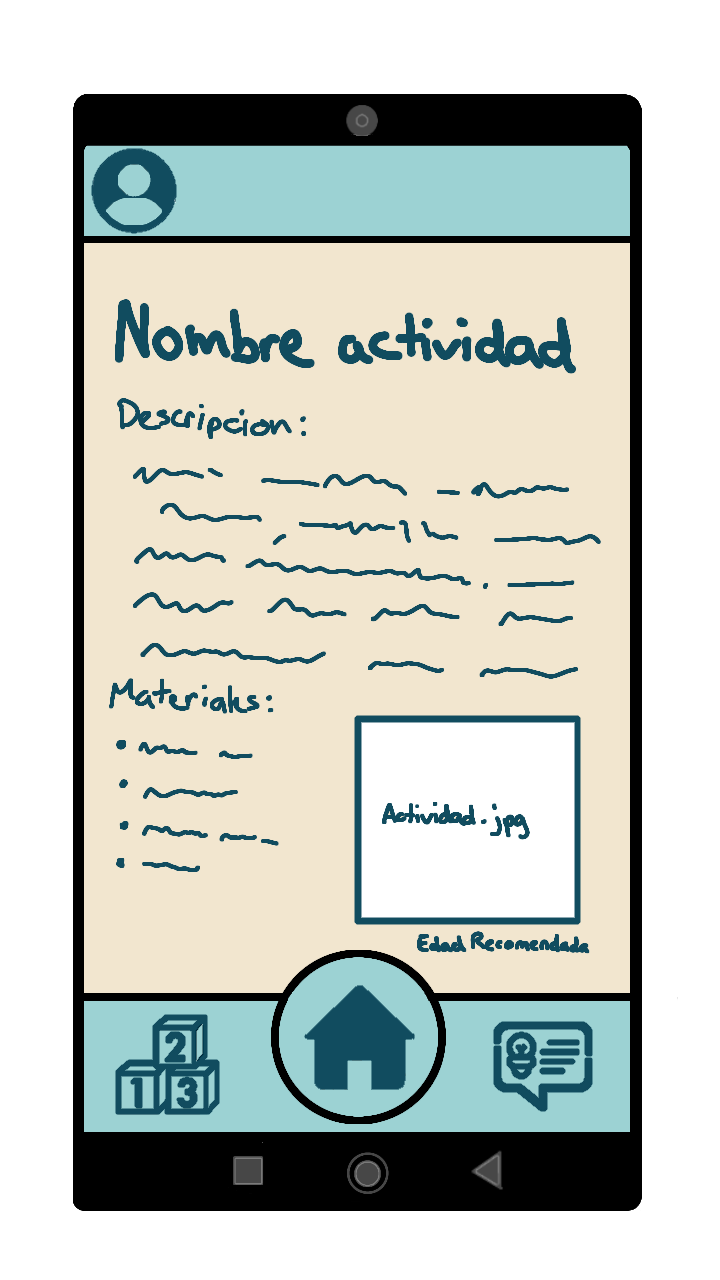 Nombre actividad
Descripcion:
Materiales:
Actividad.jpg
Edad Recomendada
2
1 3